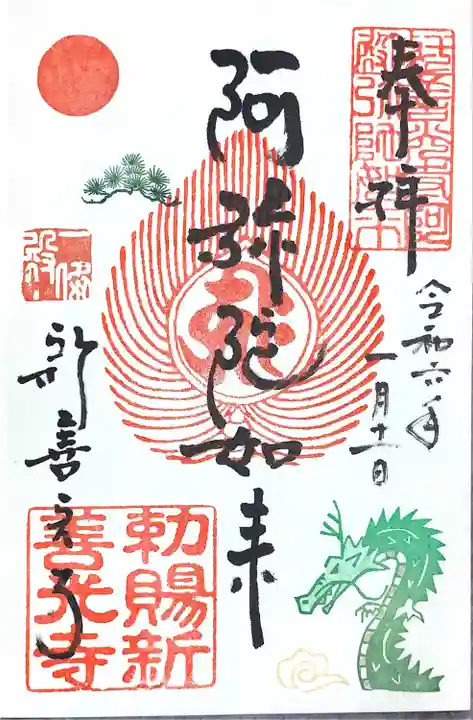 奉拝
令和六年
一月十一日
阿弥陀如来
新善光寺
勅賜新
善光寺